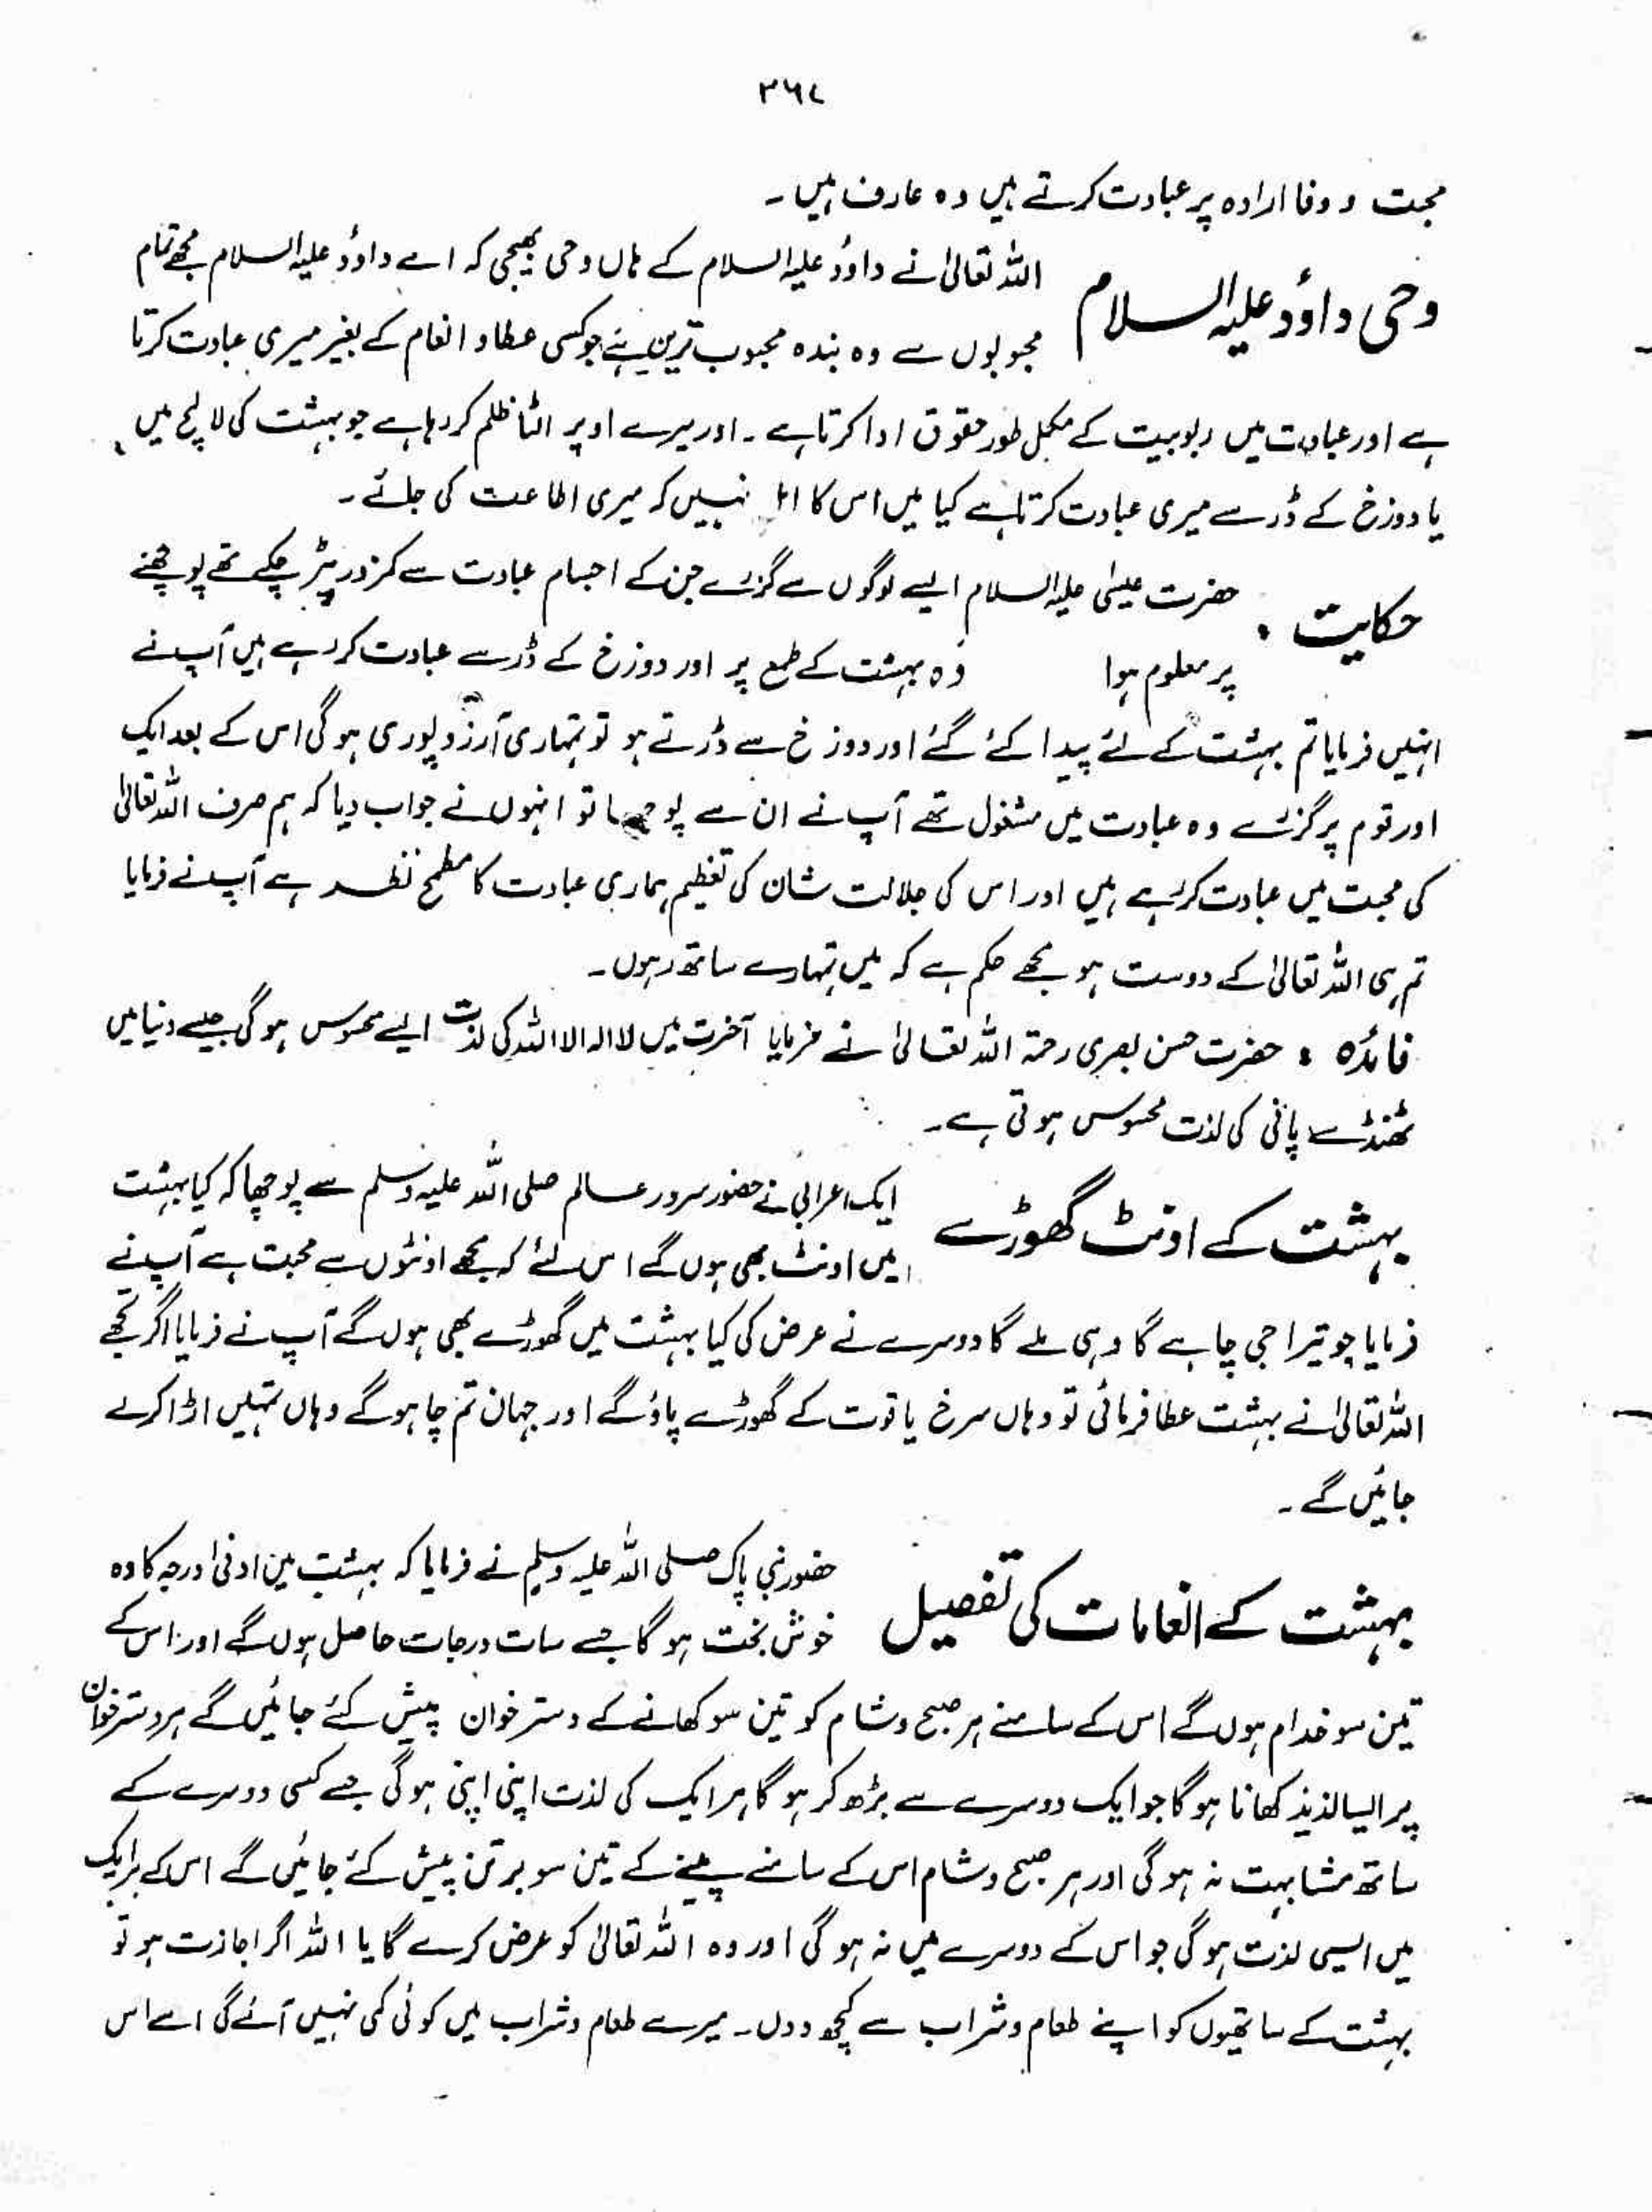 ۳۶۷
محبت و وفا ارادہ پر عبادت کرتے ہیں وہ عارف ہیں۔
وحی داؤد علیہ السلام
اللہ تعالیٰ نے داؤد علیہ السلام کے ہاں وحی بھیجی کہ اے داوٗد علیہ السلام مجھے تمام
محبوبوں سے وہ بندہ محبوب ترین ہے جو کسی عطا و انعام کے بغیر میری عبادت کرتا
ہے اور عبادت میں ربوبیت کے مکمل طور حقوق ادا کرتا ہے۔ اور میرے اوپر الٹا ظلم کر رہا ہے جو بہشت کی لالچ میں
یا دوزخ کے ڈر سے میری عبادت کرتا ہے کیا میں اس کا نہیں کہ میری اطاعت کی جائے۔
حکایت :
حضرت عیسیٰ علیہ السلام ایسے لوگوں سے گزرے جن کے اجسام عبادت سے کمزور پڑ چکے تھے پوچھنے
پر معلوم ہوا وہ بہشت کے طمع پر اور دوزخ کے ڈر سے عبادت کر رہے ہیں آپ نے
انہیں فرمایا تم بہشت کے لئے پیدا کئے گئے اور دوزخ سے ڈرتے ہو تو تمہاری آرزو پوری ہو گی اس کے بعد ایک
اور قوم پر گزرے وہ عبادت میں مشغول تھے آپ نے ان سے پوچھا تو انہوں نے جواب دیا کہ ہم صرف اللہ تعالیٰ
کی محبت میں عبادت کر رہے ہیں اور اس کی جلالت شان کی تعظیم ہماری عبادت کا مطمح نظر ہے آپ نے فرمایا
تم ہی اللہ تعالیٰ کے دوست ہو مجھے حکم ہے کہ میں تمہارے ساتھ رہوں۔
فائدہ : حضرت حسن بصری رحمۃ اللہ تعالیٰ نے فرمایا آخرت میں لا الہ الا اللہ کی لذت ایسے محسوس ہو گی جیسے دنیا میں
ٹھنڈے پانی کی لذت محسوس ہوتی ہے۔
بہشت کے اونٹ گھوڑے
ایک اعرابی نے حضور سرور عالم صلی اللہ علیہ وسلم سے پوچھا کہ کیا بہشت
میں اونٹ بھی ہوں گے اس لئے کہ مجھے اونٹوں سے محبت ہے آپ نے
فرمایا جو تیرا جی چاہے گا وہی ملے گا دوسرے نے عرض کی کیا بہشت میں گھوڑے بھی ہوں گے آپ نے فرمایا اگر تجھے
اللہ تعالیٰ نے بہشت عطا فرمائی تو وہاں سرخ یاقوت کے گھوڑے پاؤ گے اور جہان تم چاہو گے وہاں تمہیں اڈا کر لے
جائیں گے۔
بہشت کے انعامات کی تفصیل
حضور نبی پاک صلی اللہ علیہ وسلم نے فرمایا کہ بہشت مین ادنیٰ درجہ کا وہ
خوش بخت ہو گا جسے سات درجات حاصل ہوں گے اور اس کے
تین سو خدام ہوں گے اس کے سامنے ہر صبح و شام کو تین سو کھانے کے دسترخوان پیش کئے جائیں گے ہر دسترخوان
پر ایسا لذیذ کھانا ہو گا جو ایک دوسرے سے بڑھ کر ہو گا ہر ایک کی لذت اپنی اپنی ہو گی جسے کسی دوسرے کے
ساتھ مشابہت نہ ہو گی اور ہر صبح و شام اس کے سامنے پینے کے تین سو برتن پیش کئے جائیں گے اس کے ہر ایک
میں ایسی لذت ہو گی جو اس کے دوسرے میں نہ ہو گی اور وہ اللہ تعالیٰ کو عرض کرے گا یا اللہ اگر اجازت ہو تو
بہشت کے ساتھیوں کو اپنے طعام و شراب سے کچھ دوں۔ میرے طعام و شراب میں کوئی کمی نہیں آئے گی اسے اس